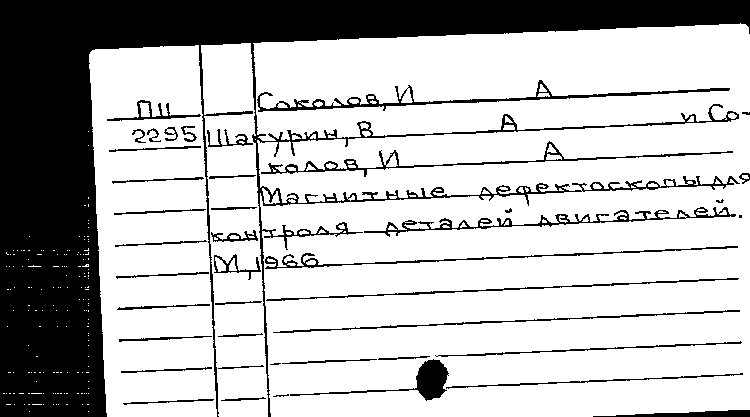 Соколов, И А
ПII
2295 Шакурин, В А и Со-
колов, И А
Магнитные дефектоскопы для
контроля деталей двигателей.
М, 1966